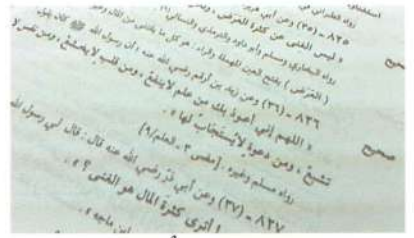 رواه الطبراني في
٨٢٥ - (٣٥) وعن أبي هريرة
« ليس الغنى عن كثرة العَرَض ،
رواه البخاري ومسلم وأبو داود والترمذي والنسائي
( العَرَض ) بفتح العين المهملة والراء : هو كل ما يقتنى من المال وغيره
صحيح
٨٢٦ - (٣٦) وعن زيد بن أرقم رضي الله عنه ؛ أن رسول الله ﷺ كان يقول
« اللهم إني أعوذ بك من علم لا ينفع ، ومن قلب لا يخشع ، ومن نفس لا
تشبع ، ومن دعوة لا يُستجابُ لها » .
رواه مسلم وغيره . [مضى ٣- العلم/٩]
صحيح
٨٢٧ - (٣٧) وعن أبي ذر رضي الله عنه قال : قال لي رسول الله
أترى كثرة المال هو الغنى ؟ » .
ابن ماجه